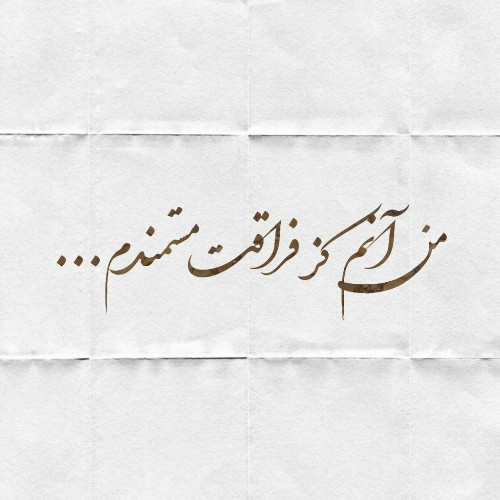 من آنم کز فراقت مستمندم ...